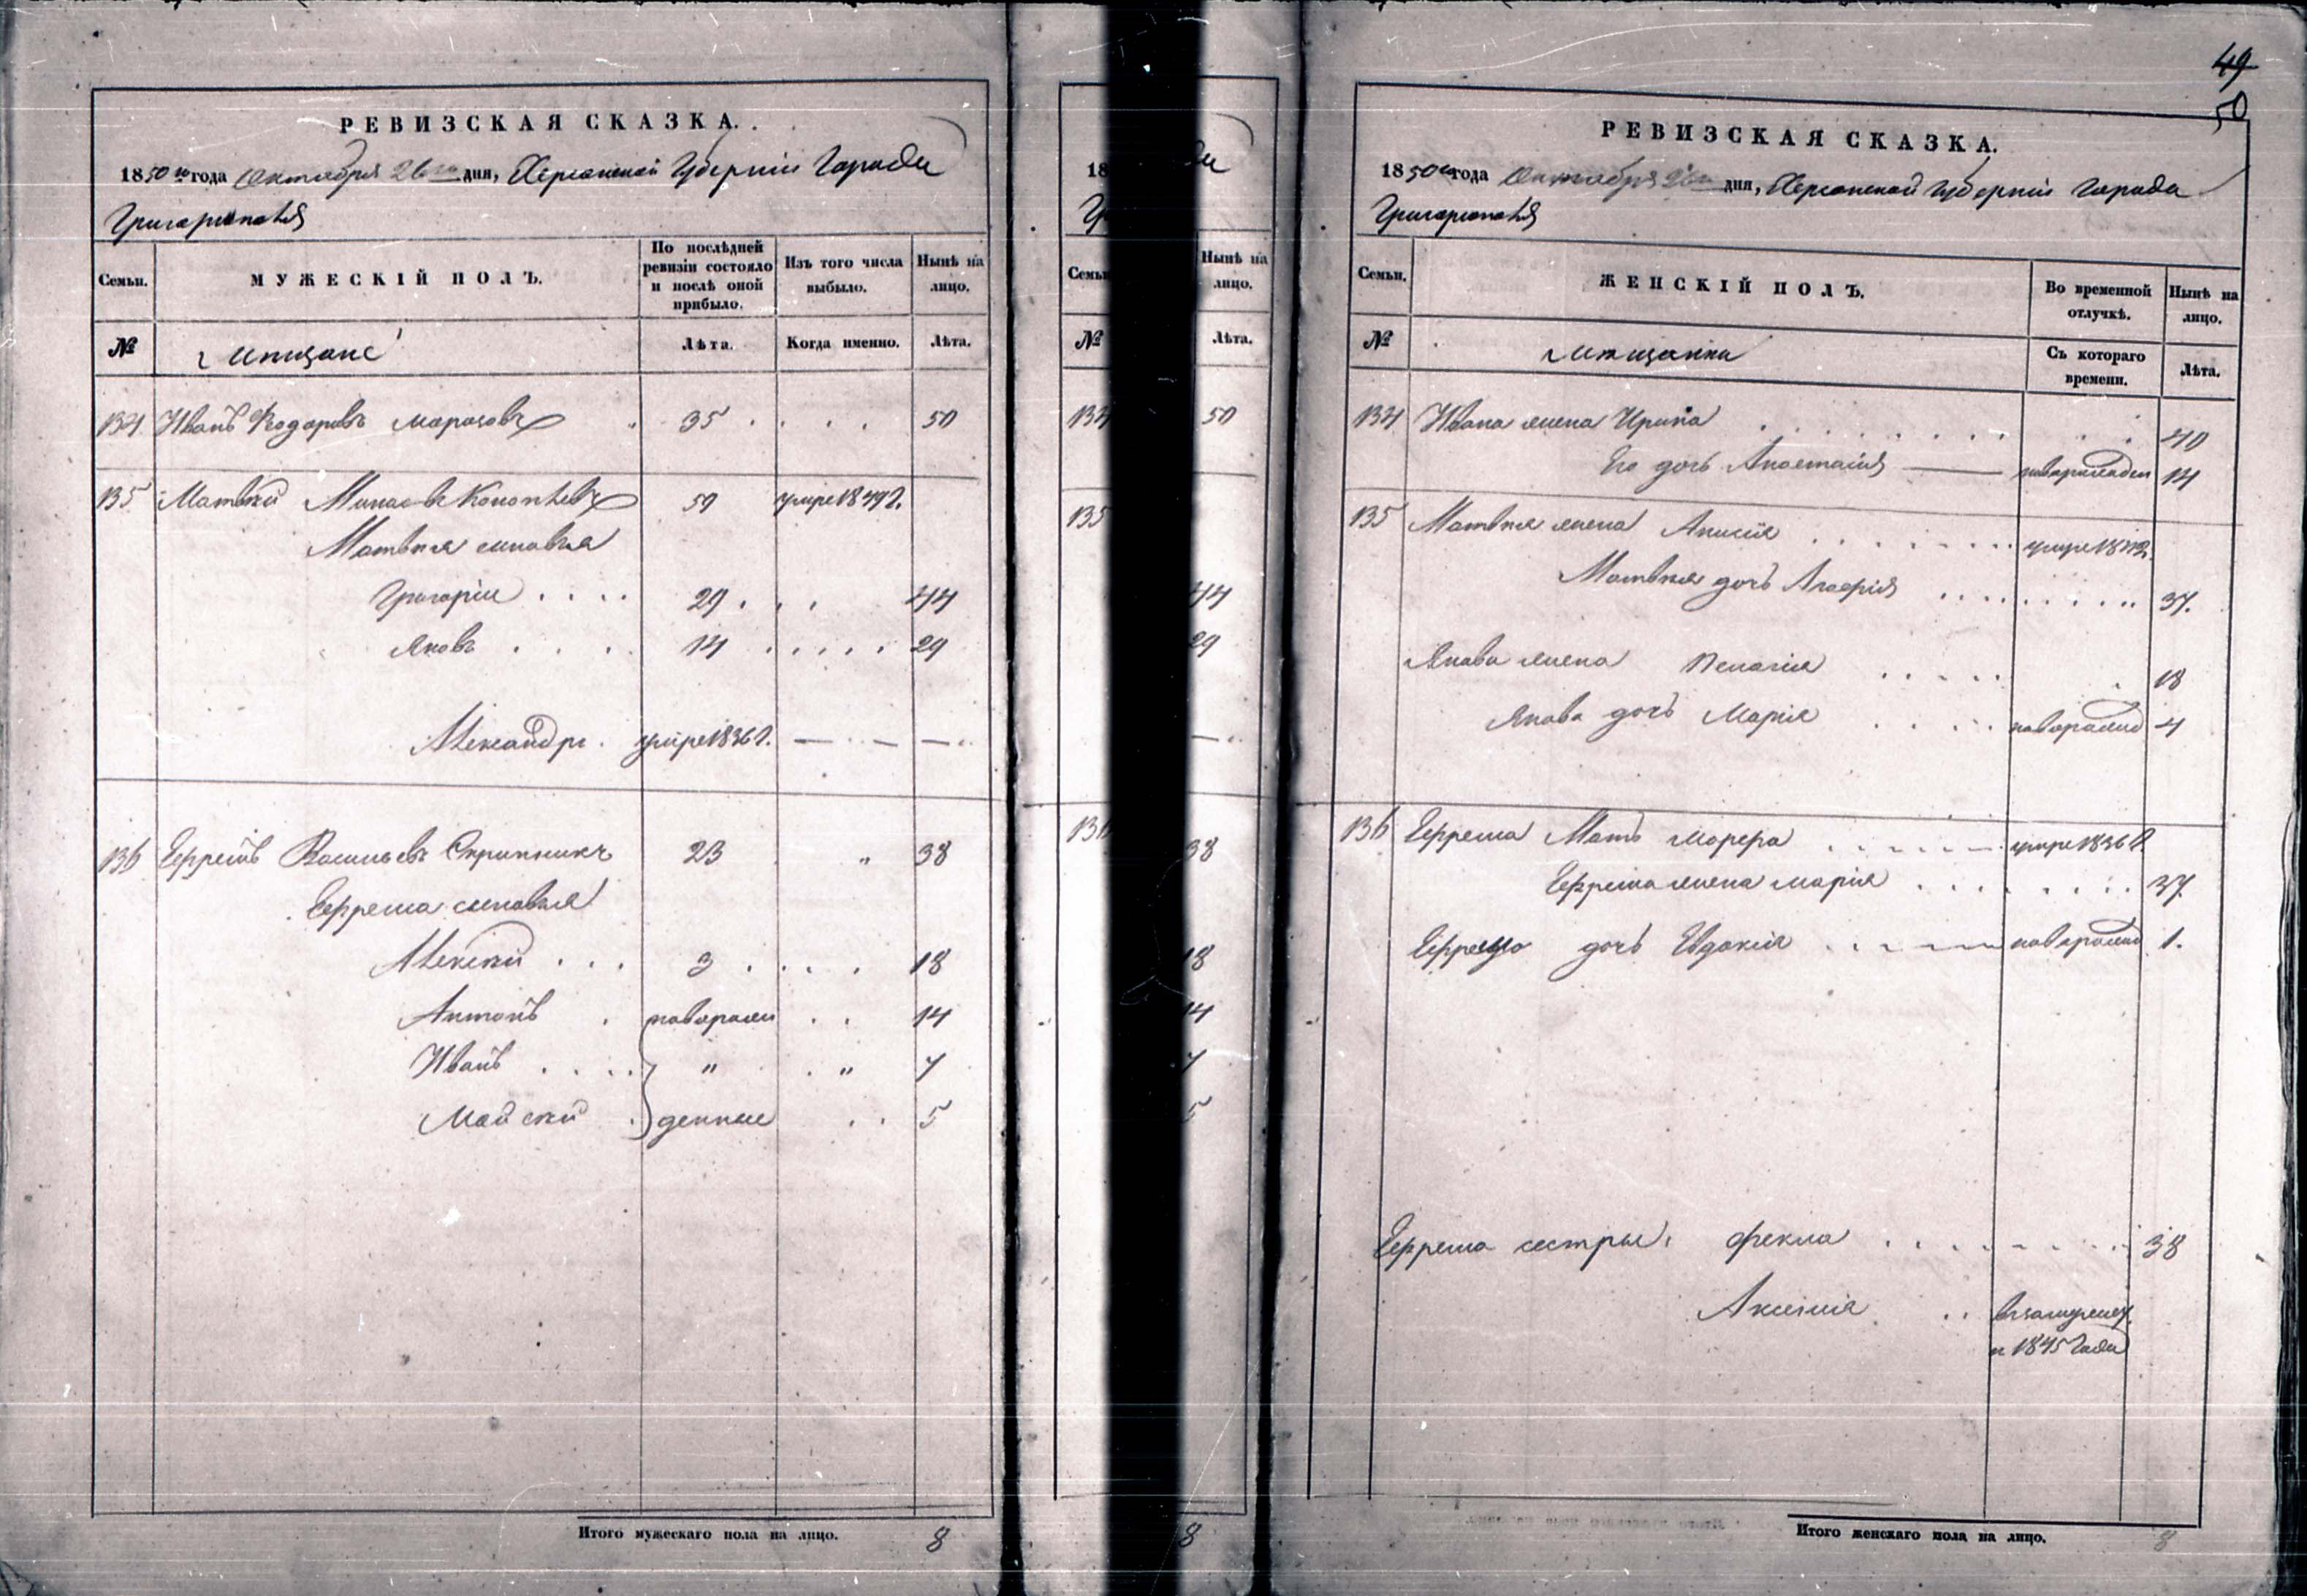 РЕВИЗСКАЯ СКАЗКА.
1850го года Октября 26го дня, Херсонской Губерніи Города
Григоріополя
Семьи. МУЖЕСКІЙ ПОЛЪ. По послѣдней ревизіи состояло и послѣ оной прибыло. Изъ того числа выбыло. Нынѣ на лицо.
№ мещане Лѣта. Когда именно. Лѣта.
134 Иванъ Федоровъ Морозовъ 35 50
135 Матвѣй 59 умре 1849 г.
Матвѣя сыновья
Григоріи 29 44
Яковъ 14 29
Александръ умре 1836 г.
136 Ефремъ Васильевъ Скрипникъ 23 " 38
Ефрема сыновья
Алексѣй 3 18
Антонъ новорож 14
Иванъ " " 7
денные 5
Итого мужескаго пола на лицо. 8
18
Семьи Нынѣ на лицо.
№ Лѣта.
134 50
135
44
29
136 38
18
14
7
5
8
49
50
РЕВИЗСКАЯ СКАЗКА.
1850го года Октября 26го дня, Херсонской Губерніи Города
Григоріополя
Семьи. ЖЕНСКІЙ ПОЛЪ. Во временной отлучкѣ. Нынѣ на лицо.
№ мещанки Съ котораго времени. Лѣта.
134 Ивана жена Ирина 40
Его дочь Анастасія 14
135 Матвѣя жена Анисія умре
Матвѣя дочь 37
Якова жена Пелагія 18
Якова дочь Марія новорожд 4
136 Ефрема Мать умре 1836 г.
Ефрема жена Марія 37
Ефрема дочь Евдокія новорожд 1.
Ефрема сестры: Фекла 38
Аксинія в замужест
1845 года
Итого женскаго пола на лицо. 8